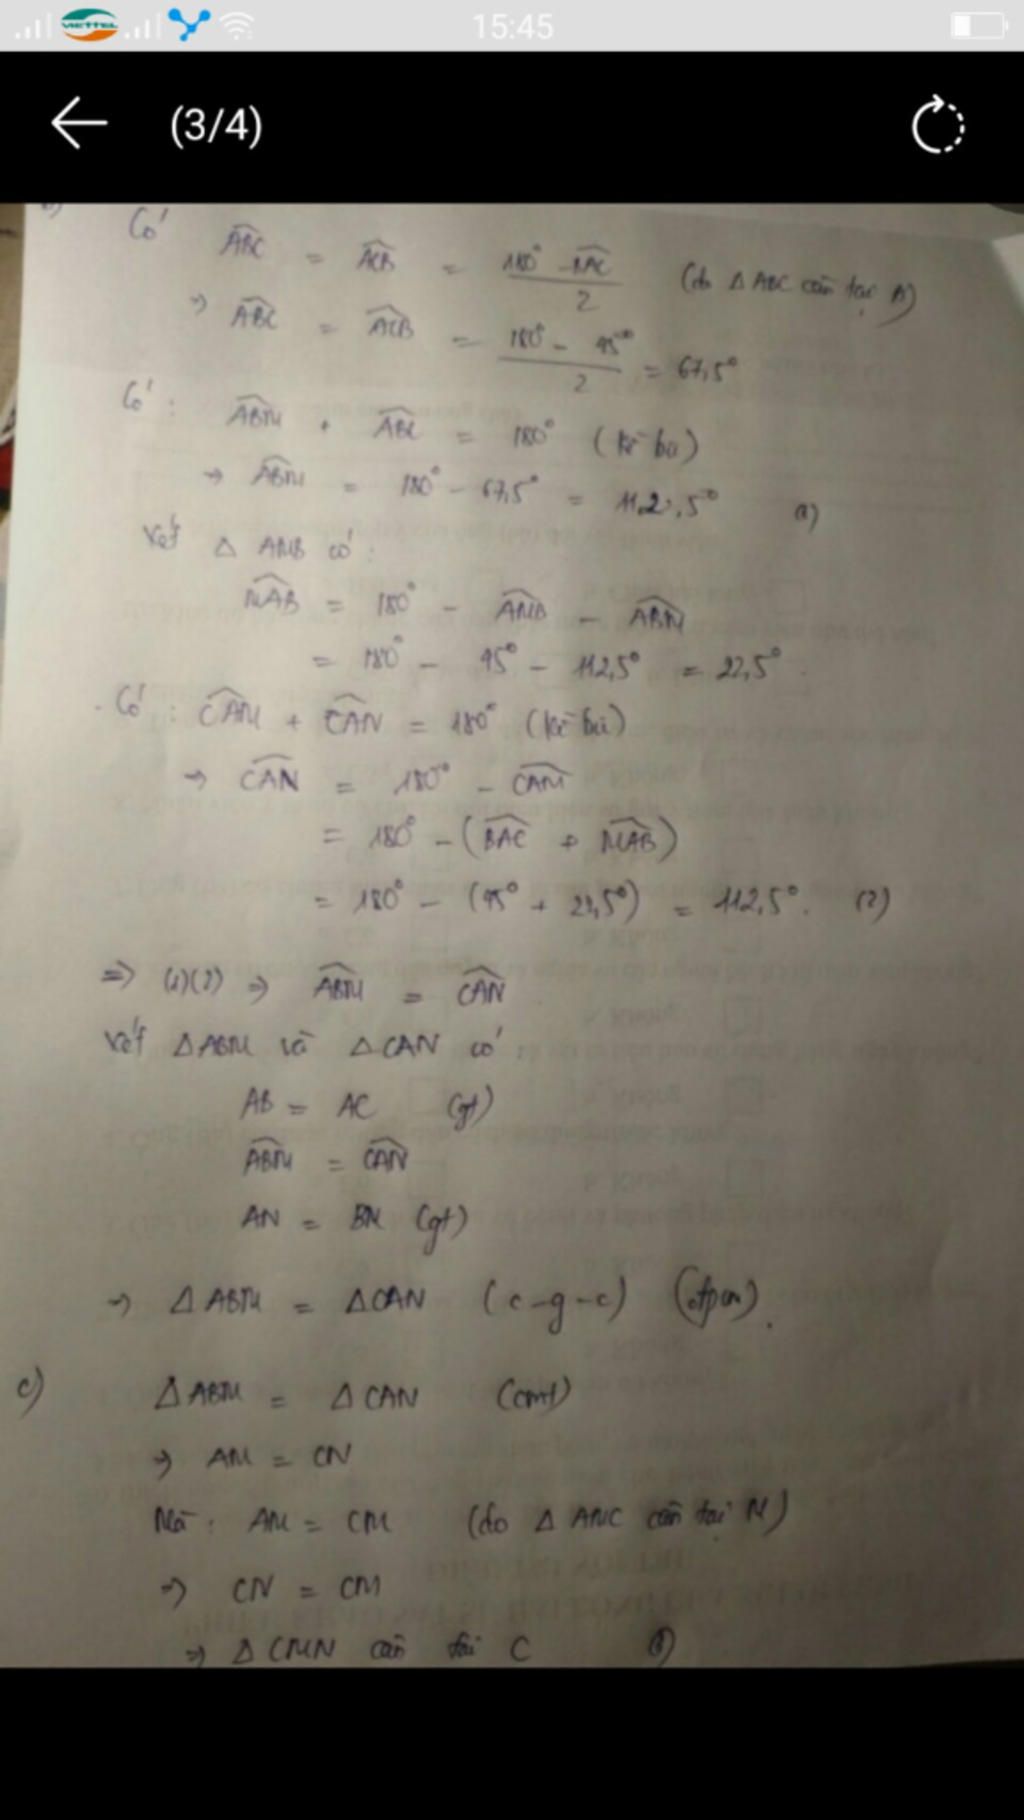 VIETTEL 15:45
(3/4)
b) Có ABC = ACB = (180° - BAC)/2 (do Δ ABC cân tại A)
→ ABC = ACB = (180° - 45°)/2 = 67,5°
Có: ABM + ABC = 180° (kề bù)
→ ABM = 180° - 67,5° = 112,5° (1)
Xét Δ AMB có:
MAB = 180° - AMB - ABM
= 180° - 45° - 112,5° = 22,5°.
Có: CAM + CAN = 180° (kề bù)
→ CAN = 180° - CAM
= 180° - (BAC + MAB)
= 180° - (45° + 22,5°) = 112,5°. (2)
=> (1)(2) → ABM = CAN
Xét Δ ABM và Δ CAN có:
AB = AC (gt)
ABM = CAN
AN = BM (gt)
→ Δ ABM = Δ CAN (c-g-c) (đpcm).
c) Δ ABM = Δ CAN (cmt)
→ AM = CN
Mà: AM = CM (do Δ AMC cân tại M)
→ CN = CM
→ Δ CMN cân tại C